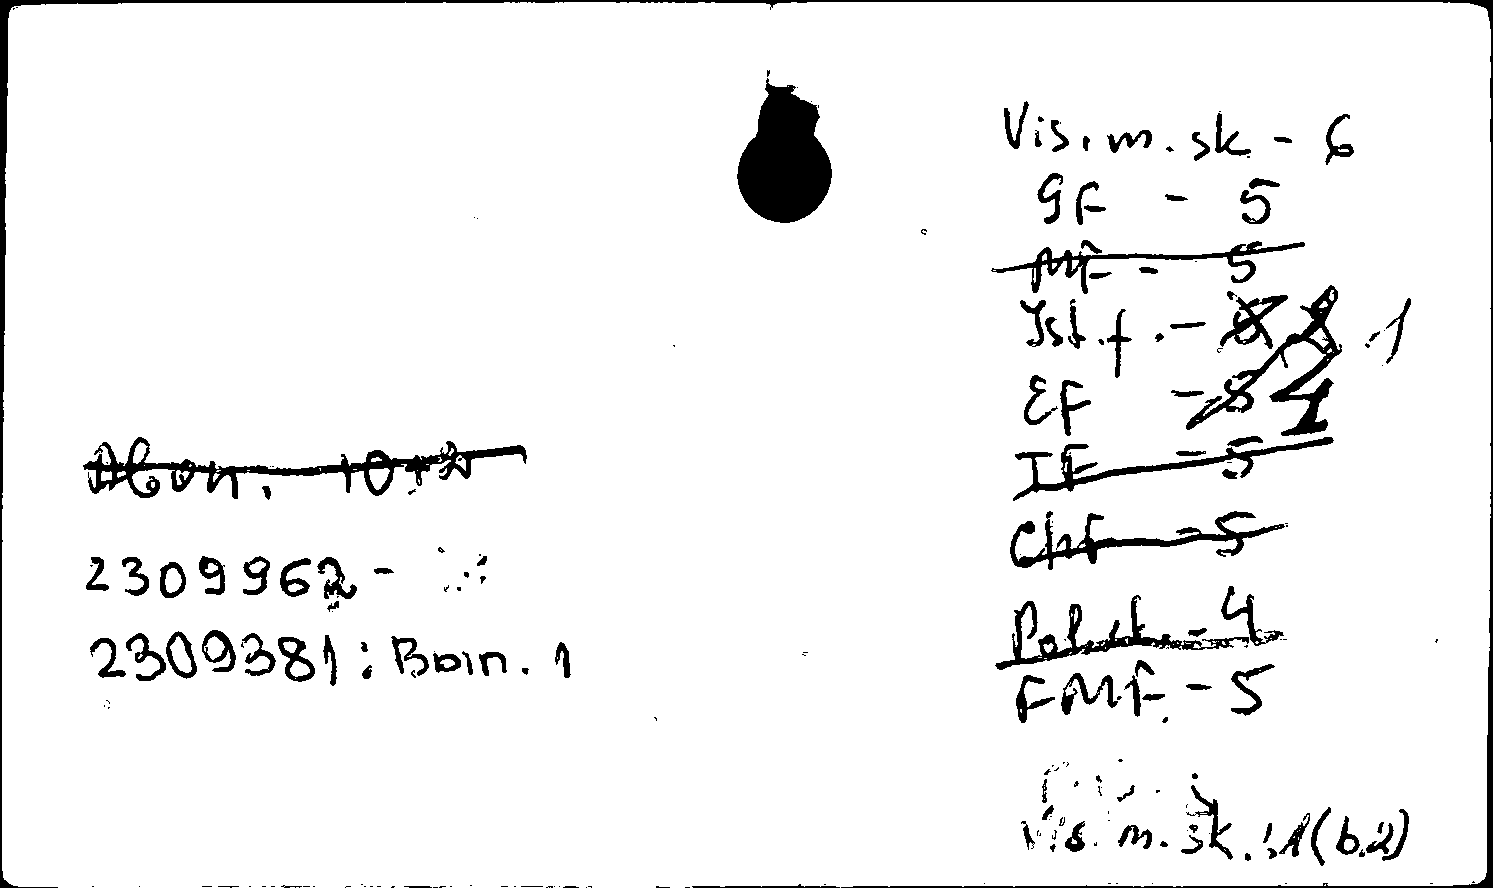 Abon. 10+2
2309962 -
2309381: Boin. 1
Vis. m. sk - 6
GF - 5
MF - 5
Ist. f. - 1
EF - 8 4
IF - 5
ChF - 5
Pol. sk. - 4
FMF. - 5
Vis. m. sk. : 1 (b.2)